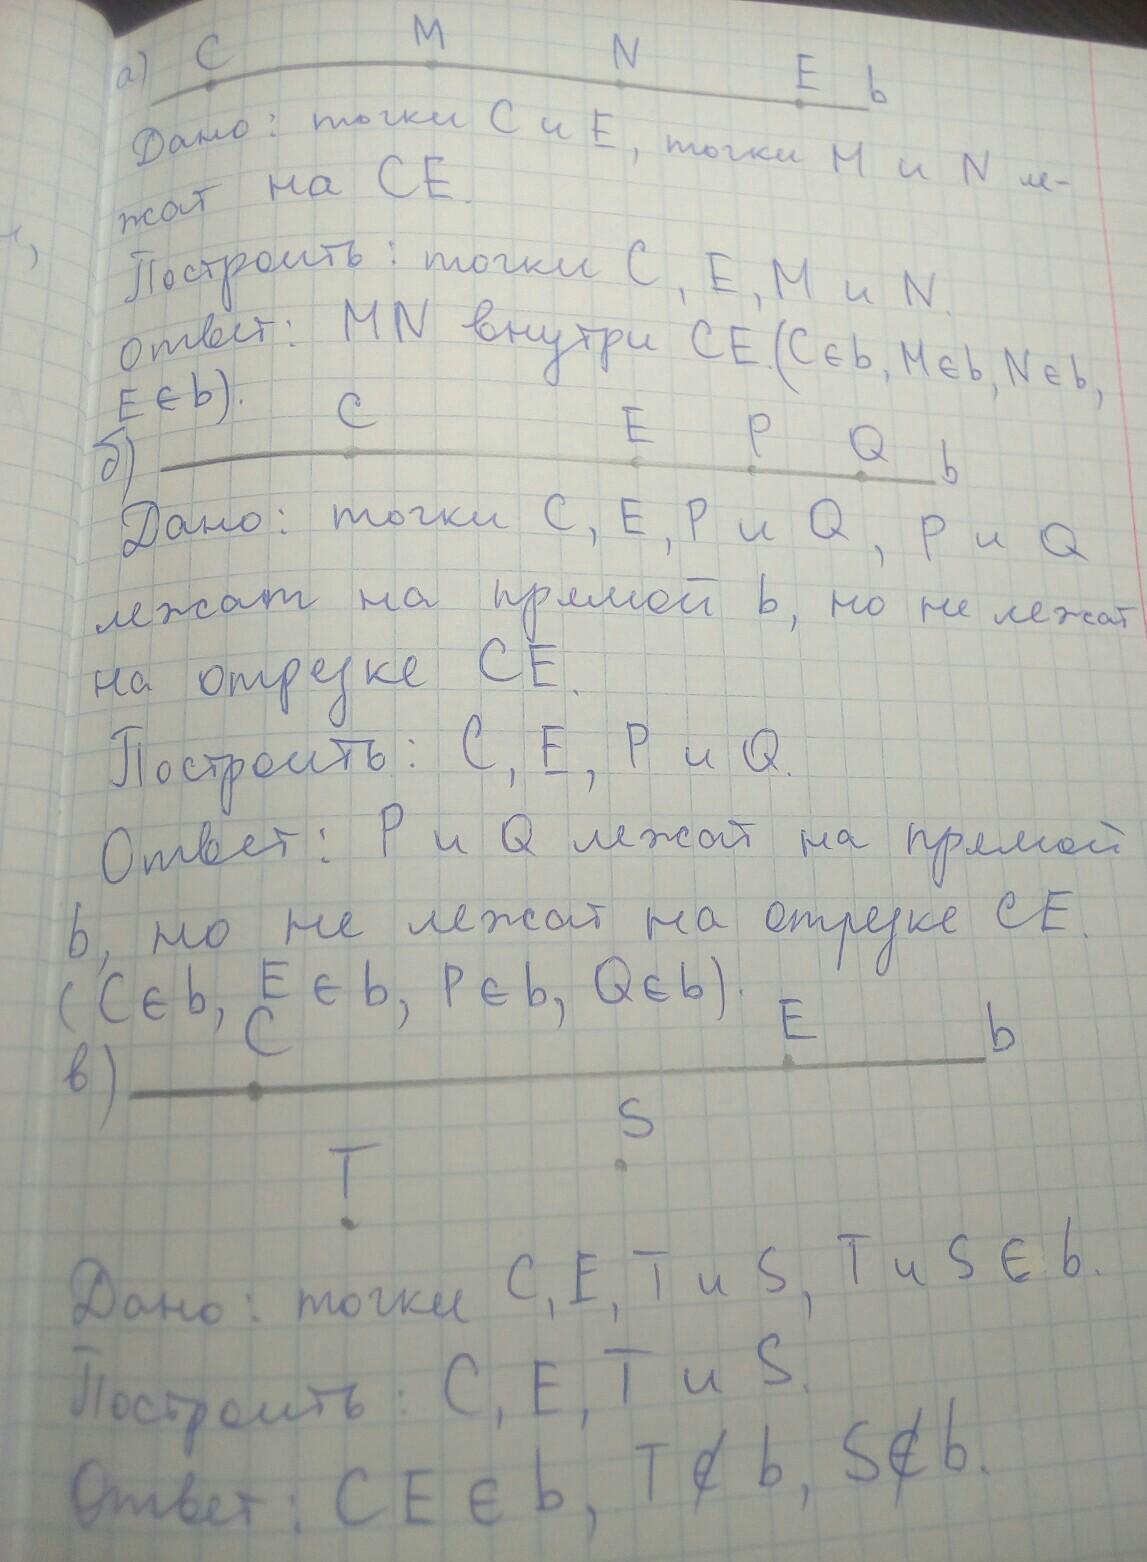 а) C M N E b
Дано: точки C и E, точки M и N ле-
жат на CE.
Построить: точки C, E, M и N.
Ответ: MN внутри CE.(C∈b, M∈b, N∈b,
E∈b).
б) C E P Q b
Дано: точки C, E, P и Q, P и Q
лежат на прямой b, но не лежат
на отрезке CE.
Построить: C, E, P и Q.
Ответ: P и Q лежат на прямой
b, но не лежат на отрезке CE.
(C∈b, E∈b, P∈b, Q∈b).
в) C E b
T S
Дано: точки C, E, T и S, T и S ∈ b.
Построить: C, E, T и S.
Ответ: CE∈b, T∉b, S∉b.